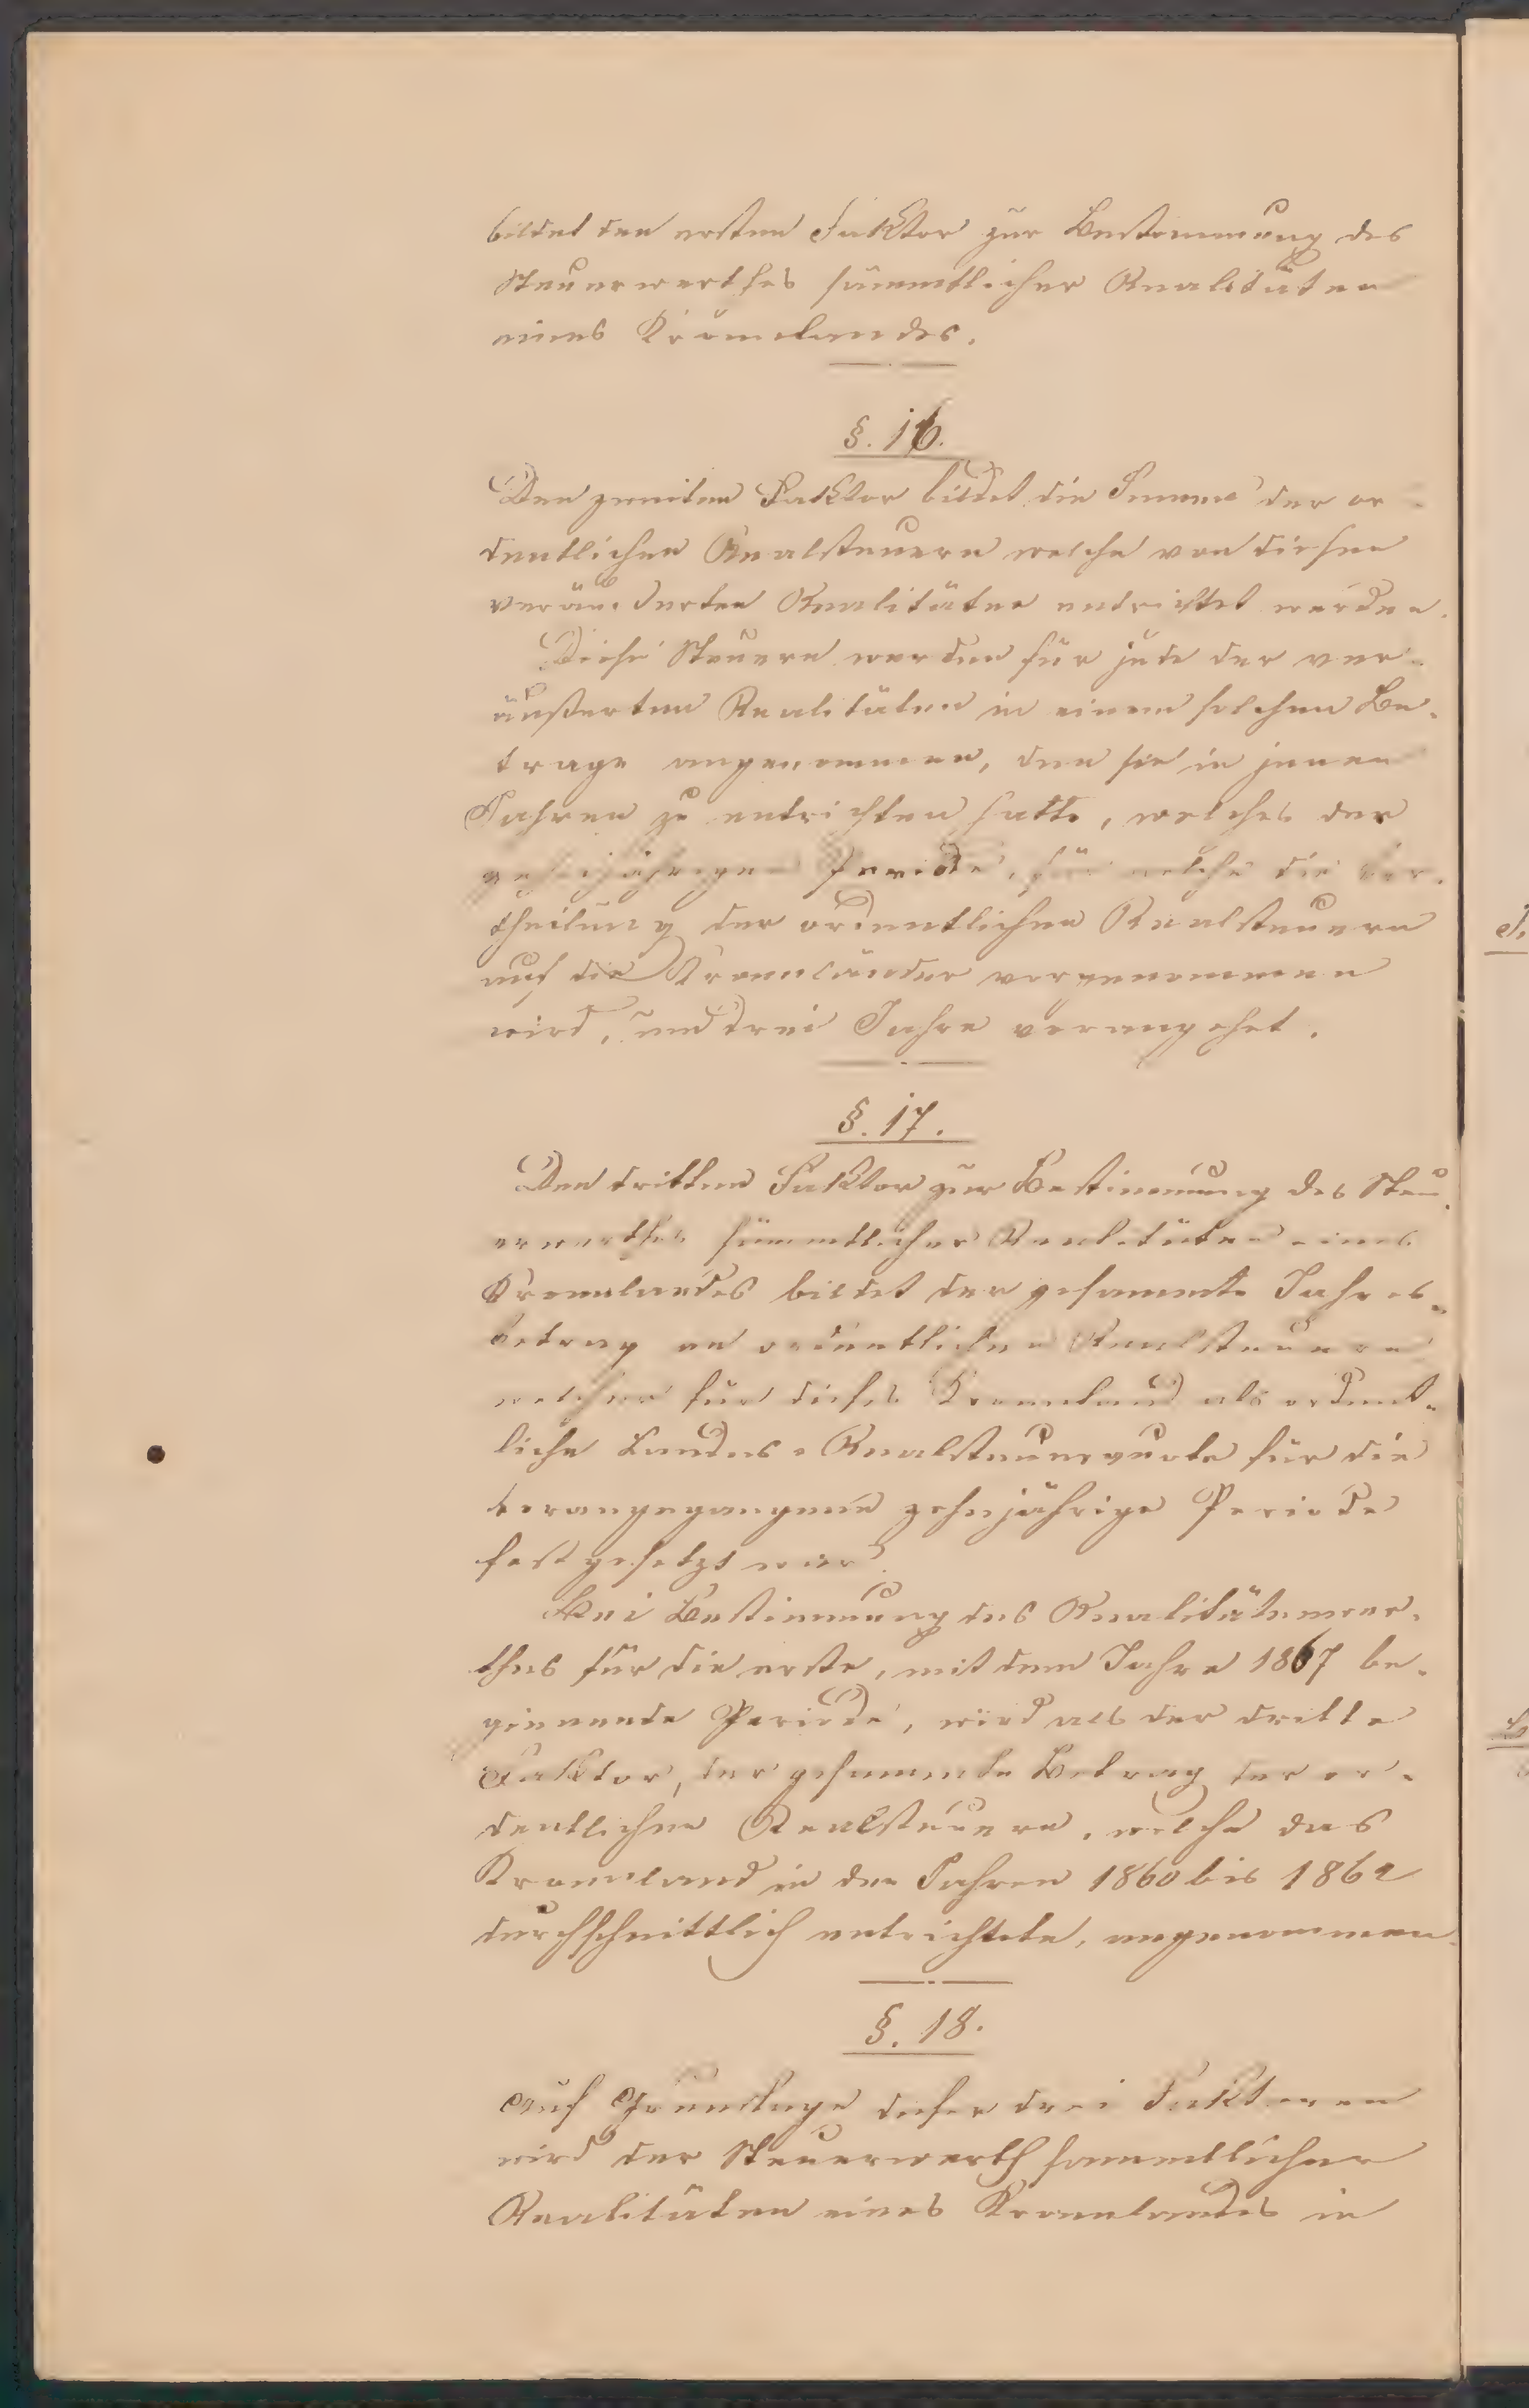 bildet den ersten Faktor zur Bestimmung des
Steuerwerthes sämmtlicher Realitäten
eines Kronlandes.
§. 16.
Den zweiten Faktor bildet die Summe der or-
dentlichen Realsteuern welche von diesen
veräußerten Realitäten entrichtet werden.
Diese Steuern werden für jede der ver-
äußerten Realitäten in einem solchen Be-
trage angenommen, den sie in jenem
Jahren zu entrichten hatte, welches der
zehnjährigen Periode, für welche die Ver-
theilung der ordentlichen Realsteuern
auf die Kronländer vorgenommen
wird, um drei Jahre vorangehet.
§. 17.
Den dritten Faktor zur Bestimmung des Steu-
erwerthes sämmtlicher Realitäten eines
Kronlandes bildet der gesammte Jahres-
betrag an ordentlichen Realsteuern
welcher für dieses Kronland als ordent-
liche Landes-Realsteuerquote für die
vorangegangene zehnjährige Periode
festgesetzt war.
Bei Bestimmung des Realitätenwer-
thes für die erste, mit dem Jahre 1867 be-
ginnende Periode, wird als der dritte
Faktor, der gesammte Betrag der or-
dentlichen Realsteuern, welche das
Kronland in den Jahren 1860 bis 1862
durchschnittlich entrichtete, angenommen.
§. 18.
Auf Grundlage dieser drei Faktoren
wird der Steuerwerth sämmtlicher
Realitäten eines Kronlandes in